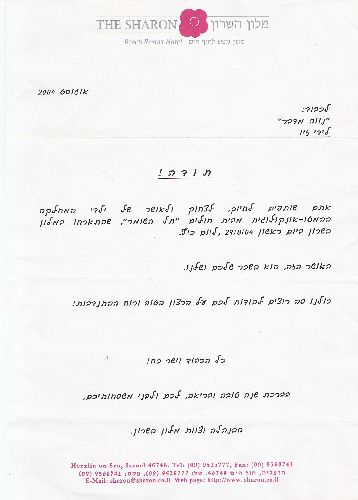 THE SHARON מלון השרון
Beach Resort Hotel מלון נופש לחוף הים
אוגוסט 2004
לכבוד:
"נווה מדבר"
לידי זיו
תודה!
אתם שותפים לחיוך, לצחוק ולאושר של ילדי המחלקה
ההמטו-אונקולוגית מבית חולים "תל השומר", שהתארחו במלון
השרון ביום ראשון 29/8/04, ליום כיף.
האושר הזה, הוא השכר שלכם ושלנו.
כולנו פה רוצים להודות לכם על הרצון הטוב ורוח ההתנדבות!
כל הכבוד ויישר כח!
בברכת שנה טובה ובריאה, לכם ולבני משפחותיכם,
ההנהלה וצוות מלון השרון.
Herzlia on Sea, Israel 46748, Tel: (09) 9525777, Fax: (09) 9568741
הרצליה, חוף הים 46748, טל: 9525777 (09), פקס: 9568741 (09)
E-Mail: sharon@sharon.co.il Web page: http://www.sharon.co.il